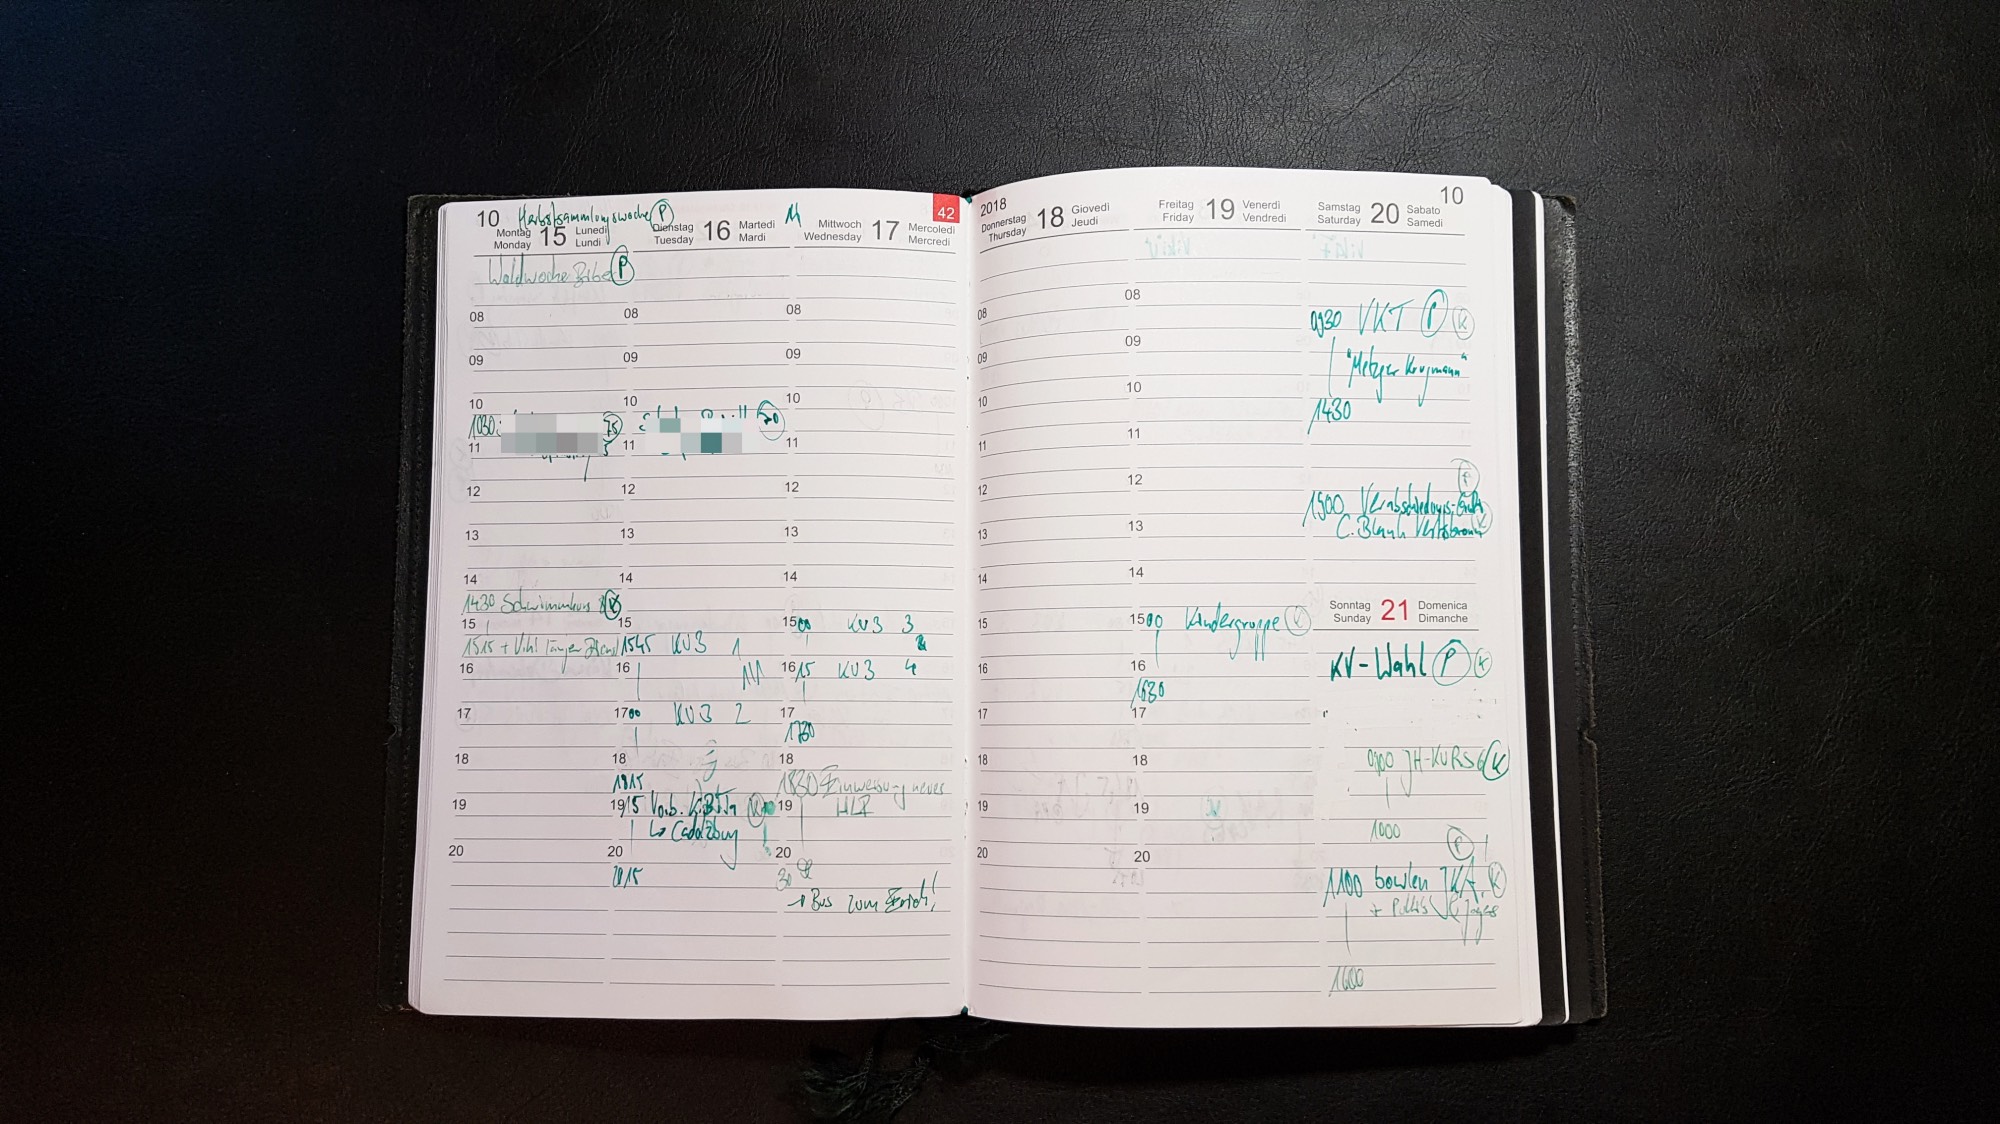 10 Herbstsammlungswoche P
Montag Monday 15 Lunedì Lundi
Waldwoche P
08
09
10
1030 75
11
12
13
14
1430 Schwimmkurs K
15
1515 +
16
17
18
19
20
Dienstag Tuesday 16 Martedì Mardi
08
09
10
11
12
13
14
15
1545 KU3 1
16
1700 KU3 2
18
1815
1915 Vorb.
↳ Cadolzburg
20
2015
42
Mittwoch Wednesday 17 Mercoledì Mercredi
08
09
10
11
12
13
14
1500 KU3 3
1615 KU3 4
17
1730
18
1830 Einweisung neues
19
20
30
→ Bus zum
2018
Donnerstag Thursday 18 Giovedì Jeudi
08
09
10
11
12
13
14
15
16
17
18
19
20
Freitag Friday 19 Venerdì Vendredi
08
09
10
11
12
13
14
1500 Kindergruppe
16
1630
17
18
19
20
10
Samstag Saturday 20 Sabato Samedi
0930 VKT P K
"Metzger
1430
1900 Verabschiedungs-
C.
Sonntag Sunday 21 Domenica Dimanche
KV-Wahl P K
0900 K
1000
P
1100 bowlen K
+
1600